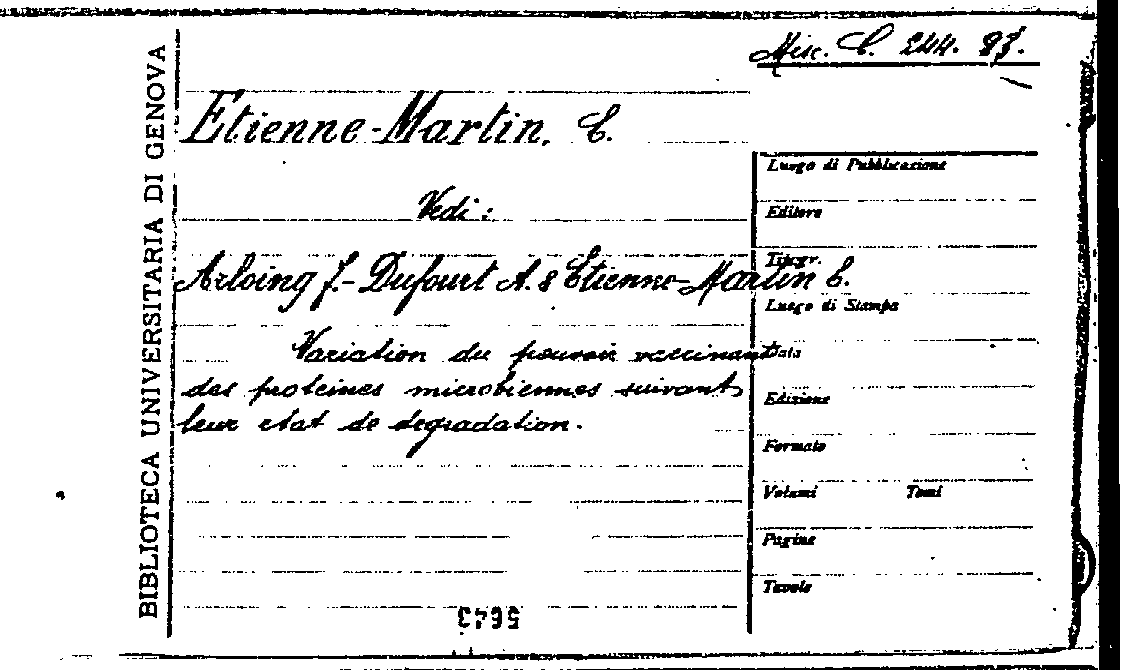 Misc. C. 244. 27.
BIBLIOTECA UNIVERSITARIA DI GENOVA
Etienne-Martin. C.
Vedi:
Arloing J.- Dufourt A. & Etienne-Martin C.
Variation du pouvoir vaccinant
des proteines microbiennes suivant
leur etat de degradation.
Luogo di Pubblicazione
Editore
Tipogr.
Luogo di Stampa
Data
Edizione
Formato
Volumi Tomi
Pagine
Tavole
5643